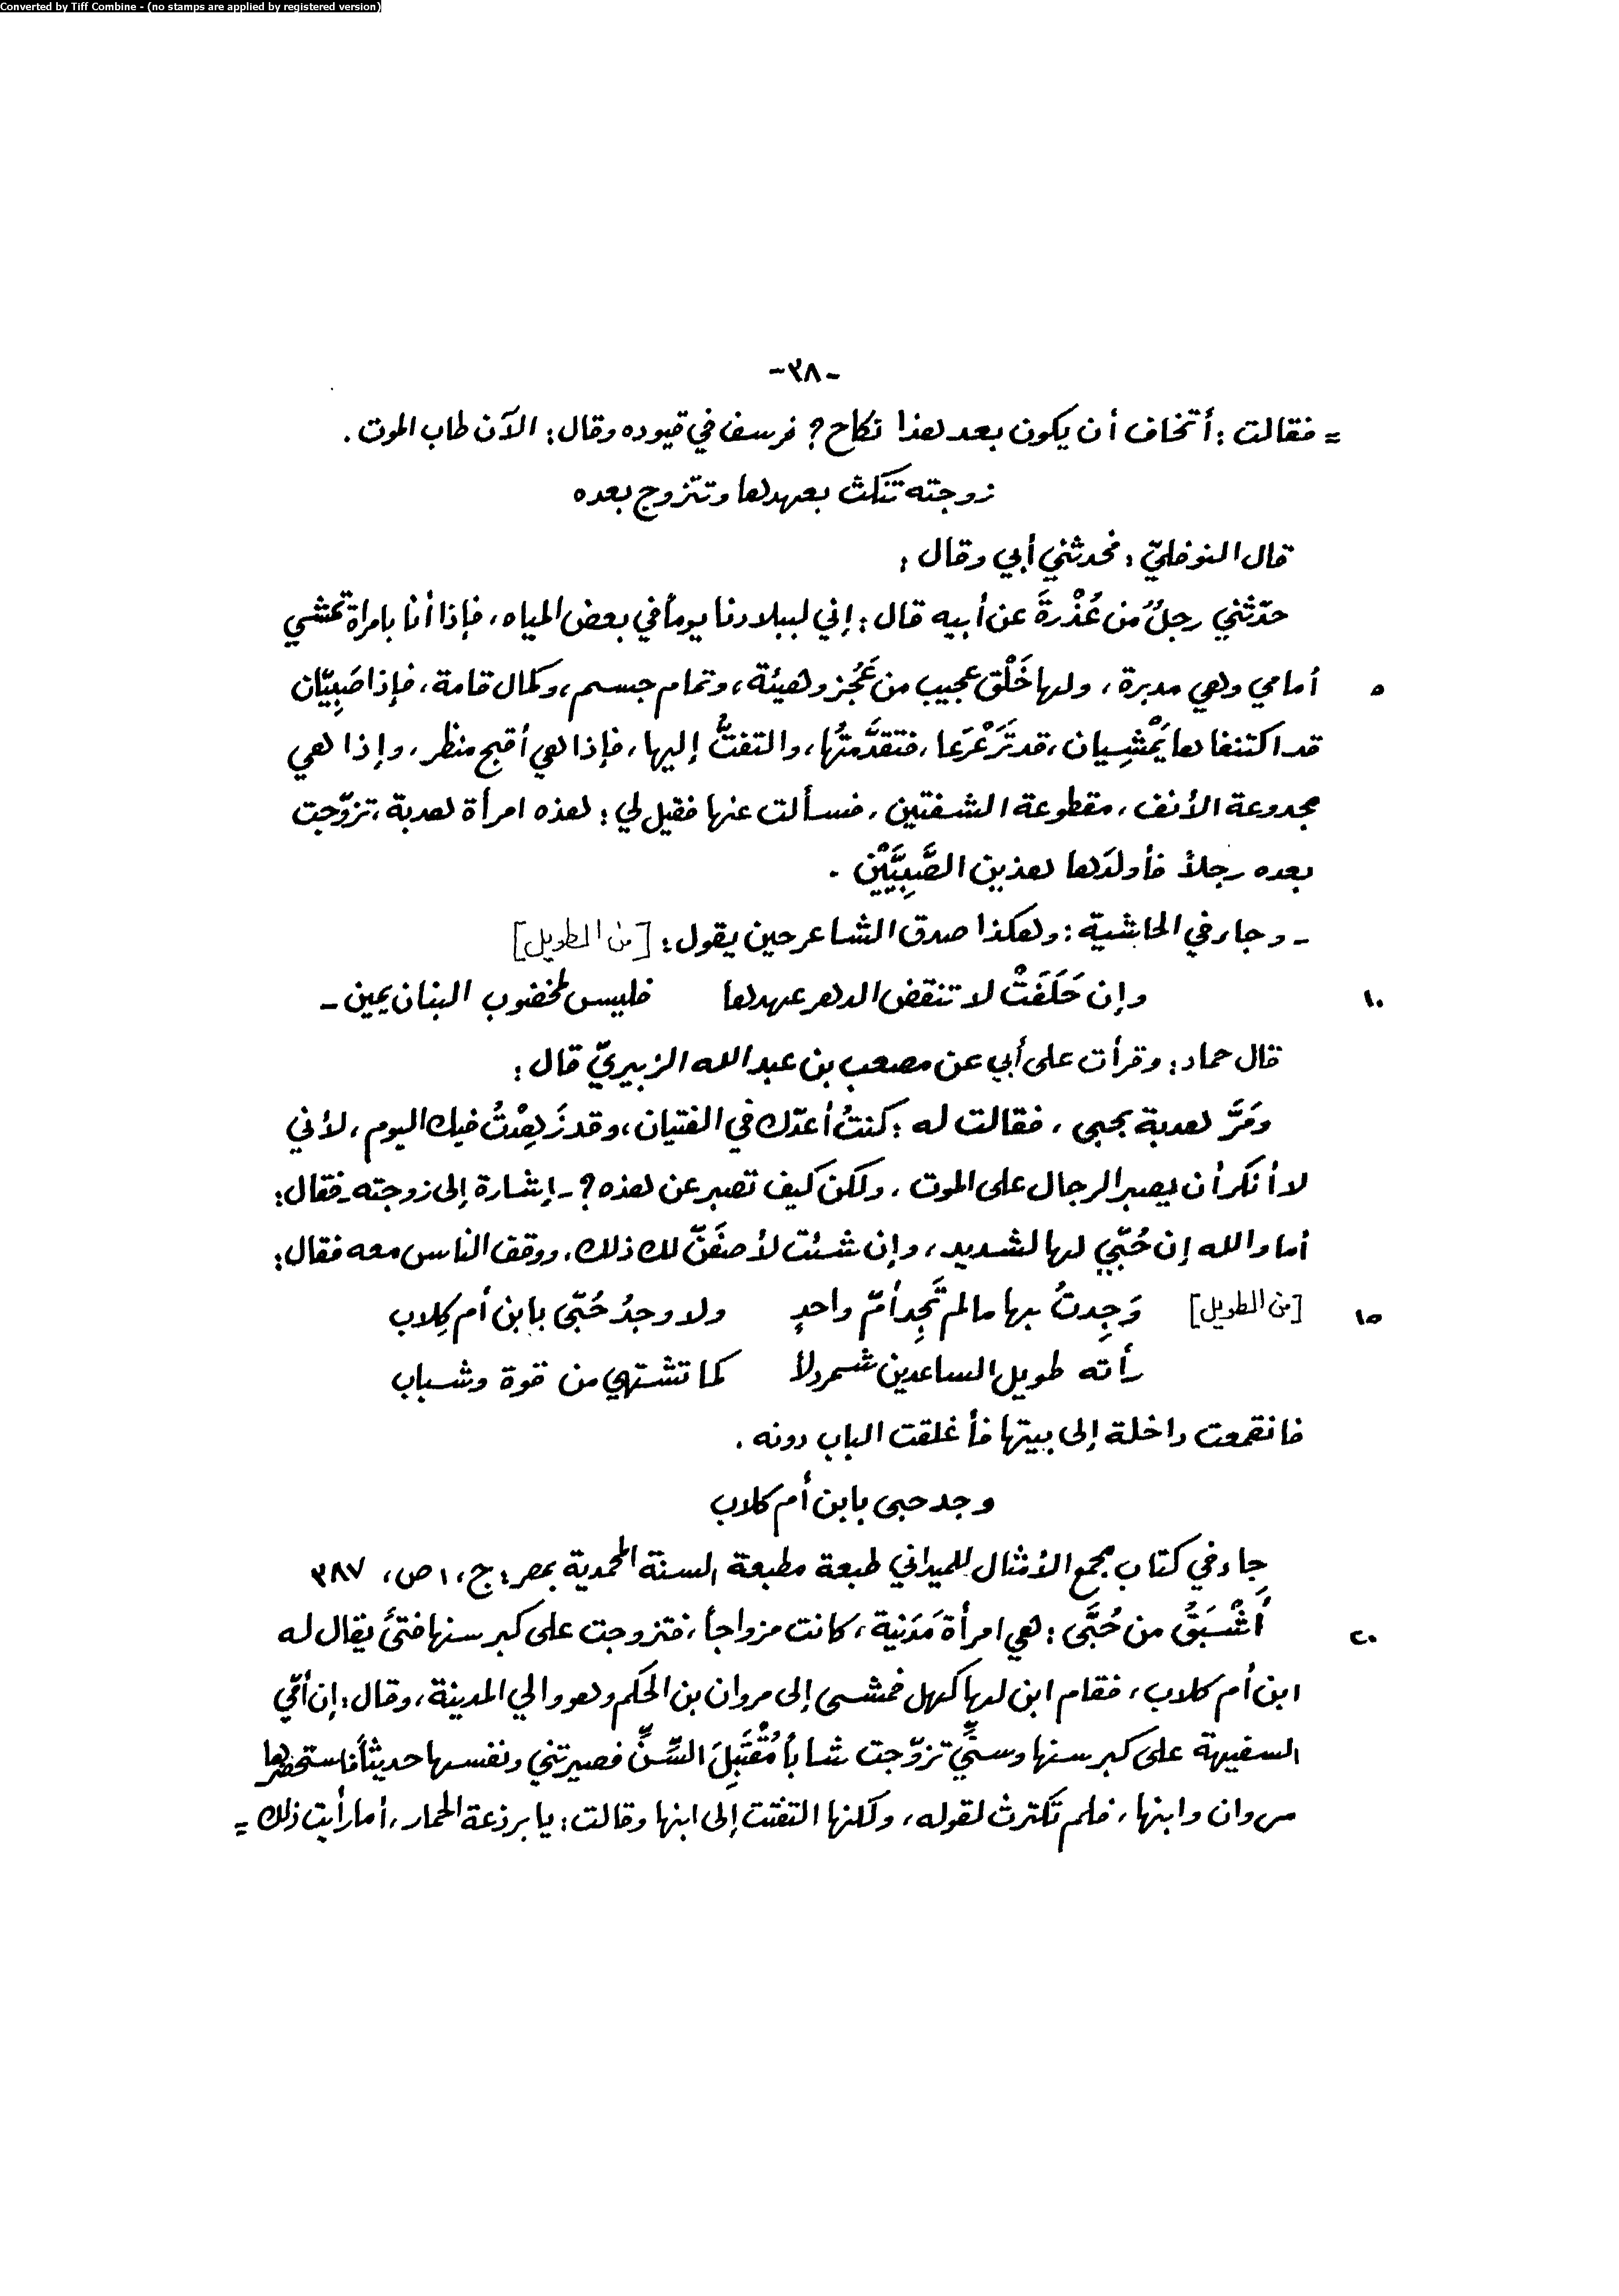 Converted by Tiff Combine - (no stamps are applied by registered version)
-٣٨-
= فقالت : أتخاف أن يكون بعد هذا نكاح ؟ فرسف في قيوده وقال : الآن طاب الموت .
زوجته تنكث بعهدها وتتزوج بعده
قال النوفليّ : فحدثني أبي وقال :
حدّثني رجلٌ من عُذْرةَ عن أبيه قال : إني لببلادنا يوماً في بعض المياه ، فإذا أنا بامرأة تمشي
٥ أمامي وهي مدبرة ، ولها خَلْق عجيب من عَجُز وهيئة ، وتمام جسم ، وكمال قامة ، فإذا صَبِيّان
قد اكتنفاها يَمْشِيان ، قد تَرَعْرَعا ، فتقدَّمتُها ، والتفتُّ إليها ، فإذا هي أقبح منظر ، وإذا هي
مجدوعة الأنف ، مقطوعة الشفتين ، فسألت عنها فقيل لي : هذه امرأة هدبة ، تزوّجت
بعده رجلاً فأولدَها هذين الصَّبِيَّيْن .
- وجاء في الحاشية : وهكذا صدق الشاعر حين يقول : [من الطويل]
١٠ وإن حَلَفَتْ لا تنقض الدهر عهدها فليس لمخضوب البنان يمين -
قال حماد : وقرأت على أبي عن مصعب بن عبد الله الزبيريّ قال :
ومَرَّ هدبة بحبى ، فقالت له : كنتُ أعدّك في الفتيان ، وقد زَهِدْتُ فيك اليوم ، لأني
لا أنكر أن يصبر الرجال على الموت ، ولكن كيف تصبر عن هذه ؟ - إشارة إلى زوجته - فقال :
أما والله إن حُبّي لها لشديد ، وإن شئت لأصفَنّ لك ذلك . ووقف الناس معه فقال :
١٥ [من الطويل] وَجِدتُ بها مالم تَجِد أمّ واحدٍ ولا وجدُ حُبّى بابن أم كِلاب
رأته طويل الساعدين شمردلاً كما تشتهي من قوة وشباب
فانقمعت داخلة إلى بيتها فأغلقت الباب دونه .
وجد حبى بابن أم كلاب
جاء في كتاب مجمع الأمثال للميداني طبعة مطبعة السنة المحمدية بمصر : ج ، ١ ص ، ٣٨٧
٢٠ أَشْبَقُ من حُبَّى : هي امرأة مَدَنية ، كانت مزواجاً ، فتزوجت على كبر سنها فتىً يقال له
ابن أم كلاب ، فقام ابن لها كهل فمشى إلى مروان بن الحكم وهو والي المدينة ، وقال : إن أمّي
السفيهة على كبر سنها وسنّي تزوّجت شاباً مُقْتَبِلَ السِّنِّ فصيرتني ونفسها حديثاً فاستحضرها
مروان وابنها ، فلم تكترث لقوله ، ولكنها التفتت إلى ابنها وقالت : يا برذعة الحمار ، أما رأيت ذلك =